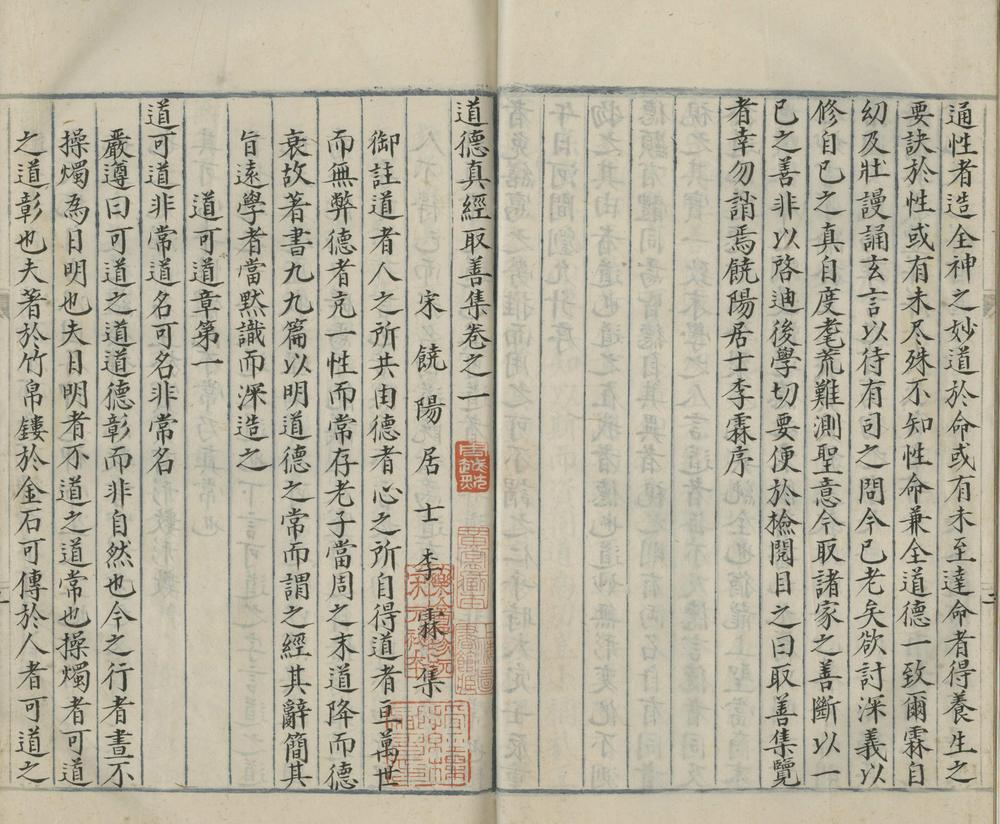 通性者造全神之妙道於命或有未至達命者得養生之
要訣於性或有未尽殊不知性命兼全道德一致爾霖自
幼及壯謾誦玄言以待有司之問今已老矣欲討深義以
修自已之真自度耄荒難測聖意今取諸家之善斷以一
已之善非以啓迪後學切要便於撿閱目之曰取善集覽
者幸勿誚焉饒陽居士李霖序
道德真經取善集卷之一
宋饒陽居士李霖集
御註道者人之所共由德者心之所自得道者亘萬世
而無弊德者充一性而常存老子當周之末道降而德
衰故著書九九篇以明道德之常而謂之經其辭簡其
旨遠學者當默識而深造之
道可道章第一
道可道非常道名可名非常名
嚴遵曰可道之道道德彰而非自然也今之行者晝不
操燭為日明也夫日明者不道之道常也操燭者可道
之道彰也夫著於竹帛鏤於金石可傳於人者可道之